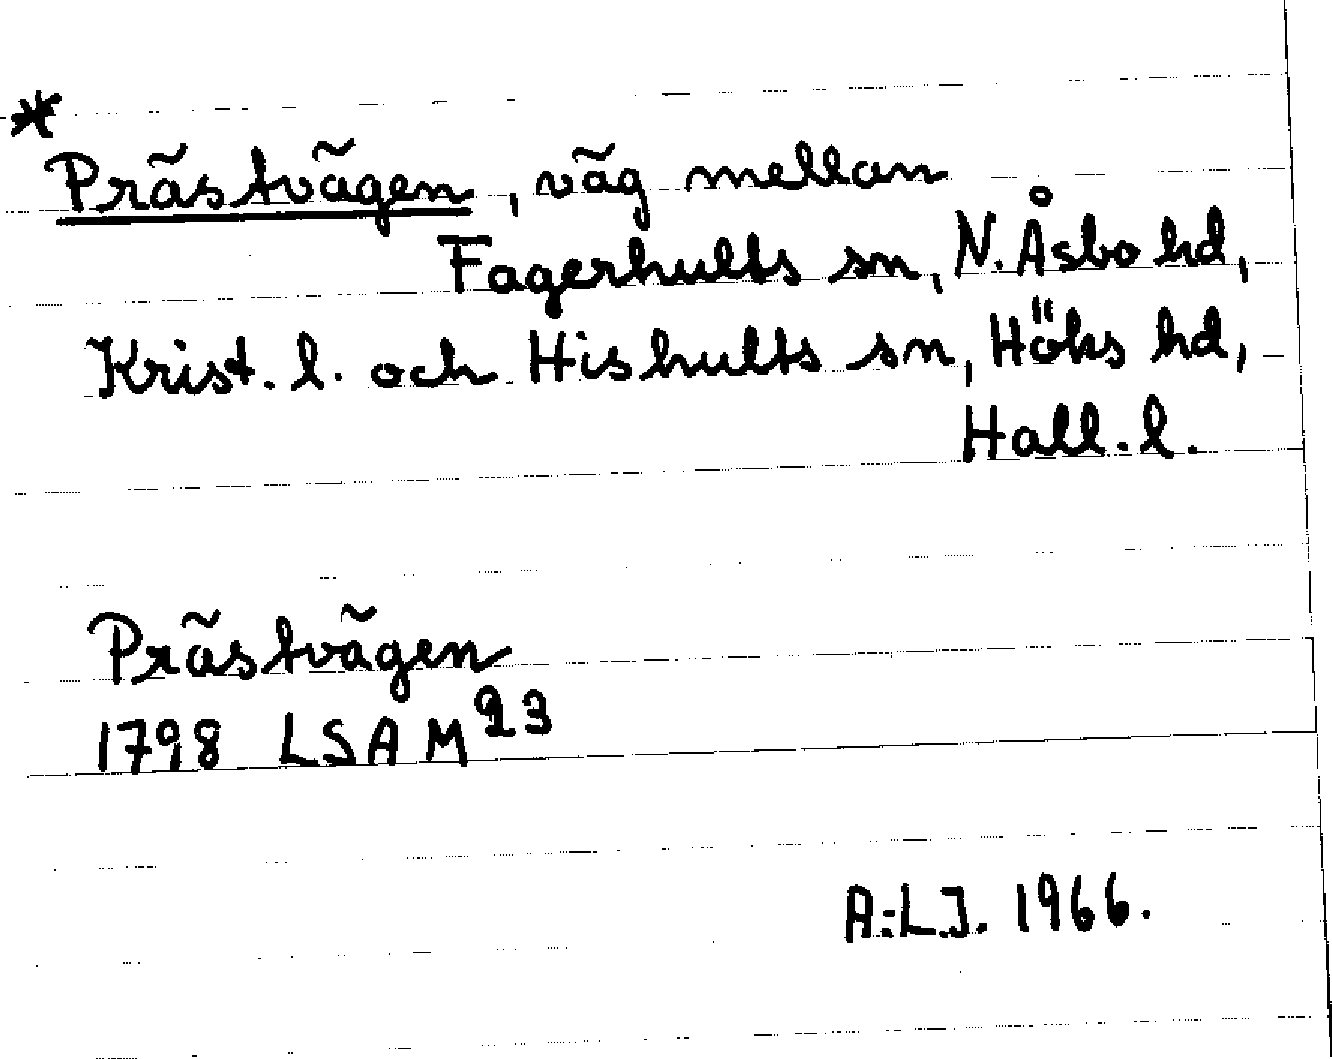 *
Prästvägen, väg mellan
Fagerhults sn, N. Åsbo hd,
Krist. l. och Hishults sn, Höks hd,
Hall. l.
Prästvägen
1798 LSA M23
A:L.J. 1966.